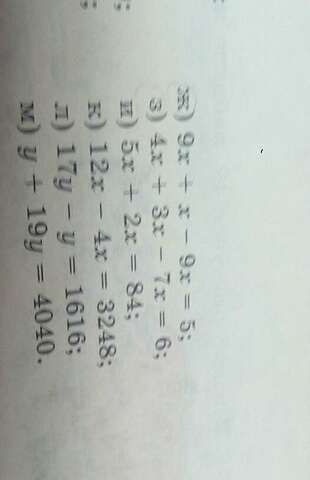 ж) 9x + x − 9x = 5;
з) 4x + 3x − 7x = 6;
и) 5x + 2x = 84;
к) 12x − 4x = 3248;
л) 17y − y = 1616;
м) y + 19y = 4040.